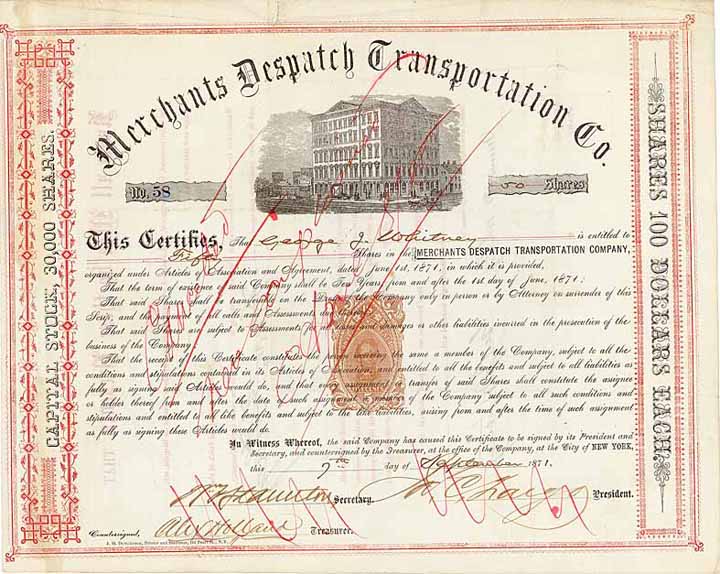 Merchants Despatch Transportation Co.
No. 58
50 Shares
This Certifies, That George J. Whitney is entitled to
Fifty Shares in the MERCHANTS DESPATCH TRANSPORTATION COMPANY,
organized under Articles of Association and Agreement, dated June 1st, 1871, in which it is provided,
That the term of existence of said Company shall be Ten Years, from and after the 1st day of June, 1871;
That said Shares shall be transferable on the Books of the Company only in person or by Attorney on surrender of this
Scrip, and the payment of all calls and Assessments due thereon;
That said Shares are subject to Assessments for any losses and damages or other liabilities incurred in the prosecution of the
business of the Company;
That the receipt of this Certificate constitutes the person receiving the same a member of the Company, subject to all the
conditions and stipulations contained in its Articles of Association, and entitled to all the benefits and subject to all liabilities as
fully as signing said Articles would do, and that our assignment or transfer of said Shares shall constitute the assignee
or holder thereof from and after the date of such assignment a member of the Company subject to all such conditions and
stipulations and entitled to all like benefits and subject to the like liabilities, arising from and after the time of such assignment
as fully as signing these Articles would do.
In Witness Whereof, the said Company has caused this Certificate to be signed by its President and
Secretary, and countersigned by the Treasurer, at the office of the Company, at the City of NEW YORK,
this 7th day of September 1871.
Secretary.
President.
Countersigned,
Treasurer.
CAPITAL STOCK, 30,000 SHARES.
SHARES 100 DOLLARS EACH.